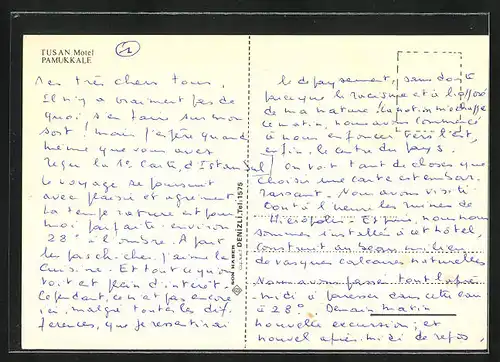 TUSAN Motel
PAMUKKALE
Mes très chers tous,
Il n'y a vraiment pas de
quoi s'en faire sur mon
sort ! mais j'espère quand
même que vous avez
reçu la 1e carte, d'Istanbul
Le voyage se poursuit
avec plaisir et agrément
La température est pour
moi parfaite environ
28° à l'ombre. A part
les pois chiches, j'aime la
cuisine. Et tout ce qu'on
voit est plein d'intérêt.
Cependant, ce n'est pas encore
ici, malgré toutes les dif
férences, que je ressentirai
SON HABER
DENİZLİ, Tel: 1575
le dépaysement, sans doute
parce que le racisme est à l'opposé
de ma nature !
ce matin, nous avons commencé
à nous enfoncer vers l'est,
enfin, le centre du pays.
On voit tant de choses que
choisir une carte est embar
rassant. Nous avons visité
tout à l'heure les ruines de
Hiérapolis. Et puis, nous nous
sommes installés à cet hôtel,
construit au beau milieu
de vasques calcaires naturelles
Nous avons passé tout l'après
midi à paresser dans cette eau
à 28°. Demain matin
nouvelle excursion ; et
nouvel après-midi de repos,